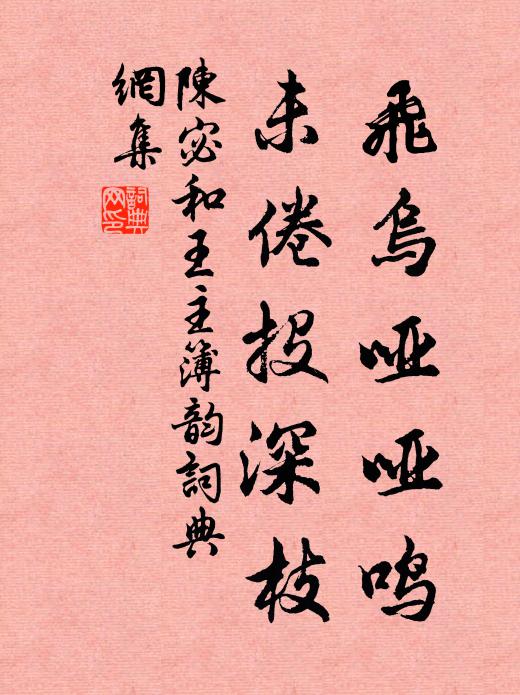 飛烏啞啞鳴
未倦投深枝
陳宓和王主簿韵詞典
網集
詞典
网印